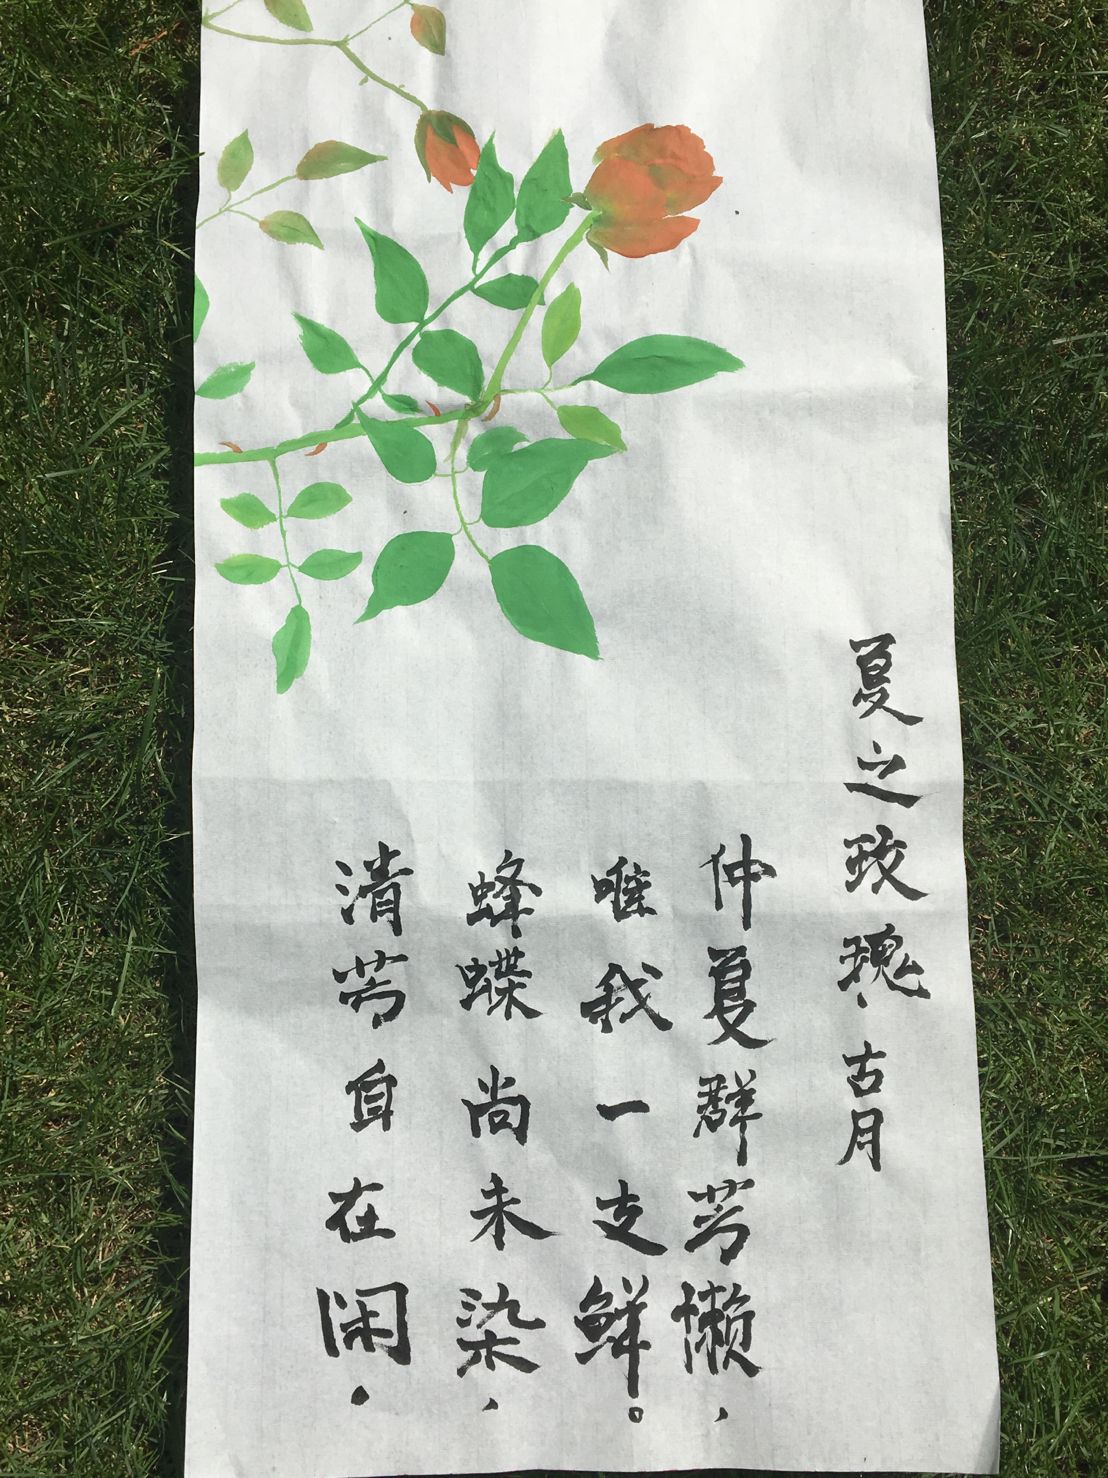 夏之玫瑰.古月
仲夏群芳懒，
唯我一支鲜。
蜂蝶尚未染，
清芳自在闲.